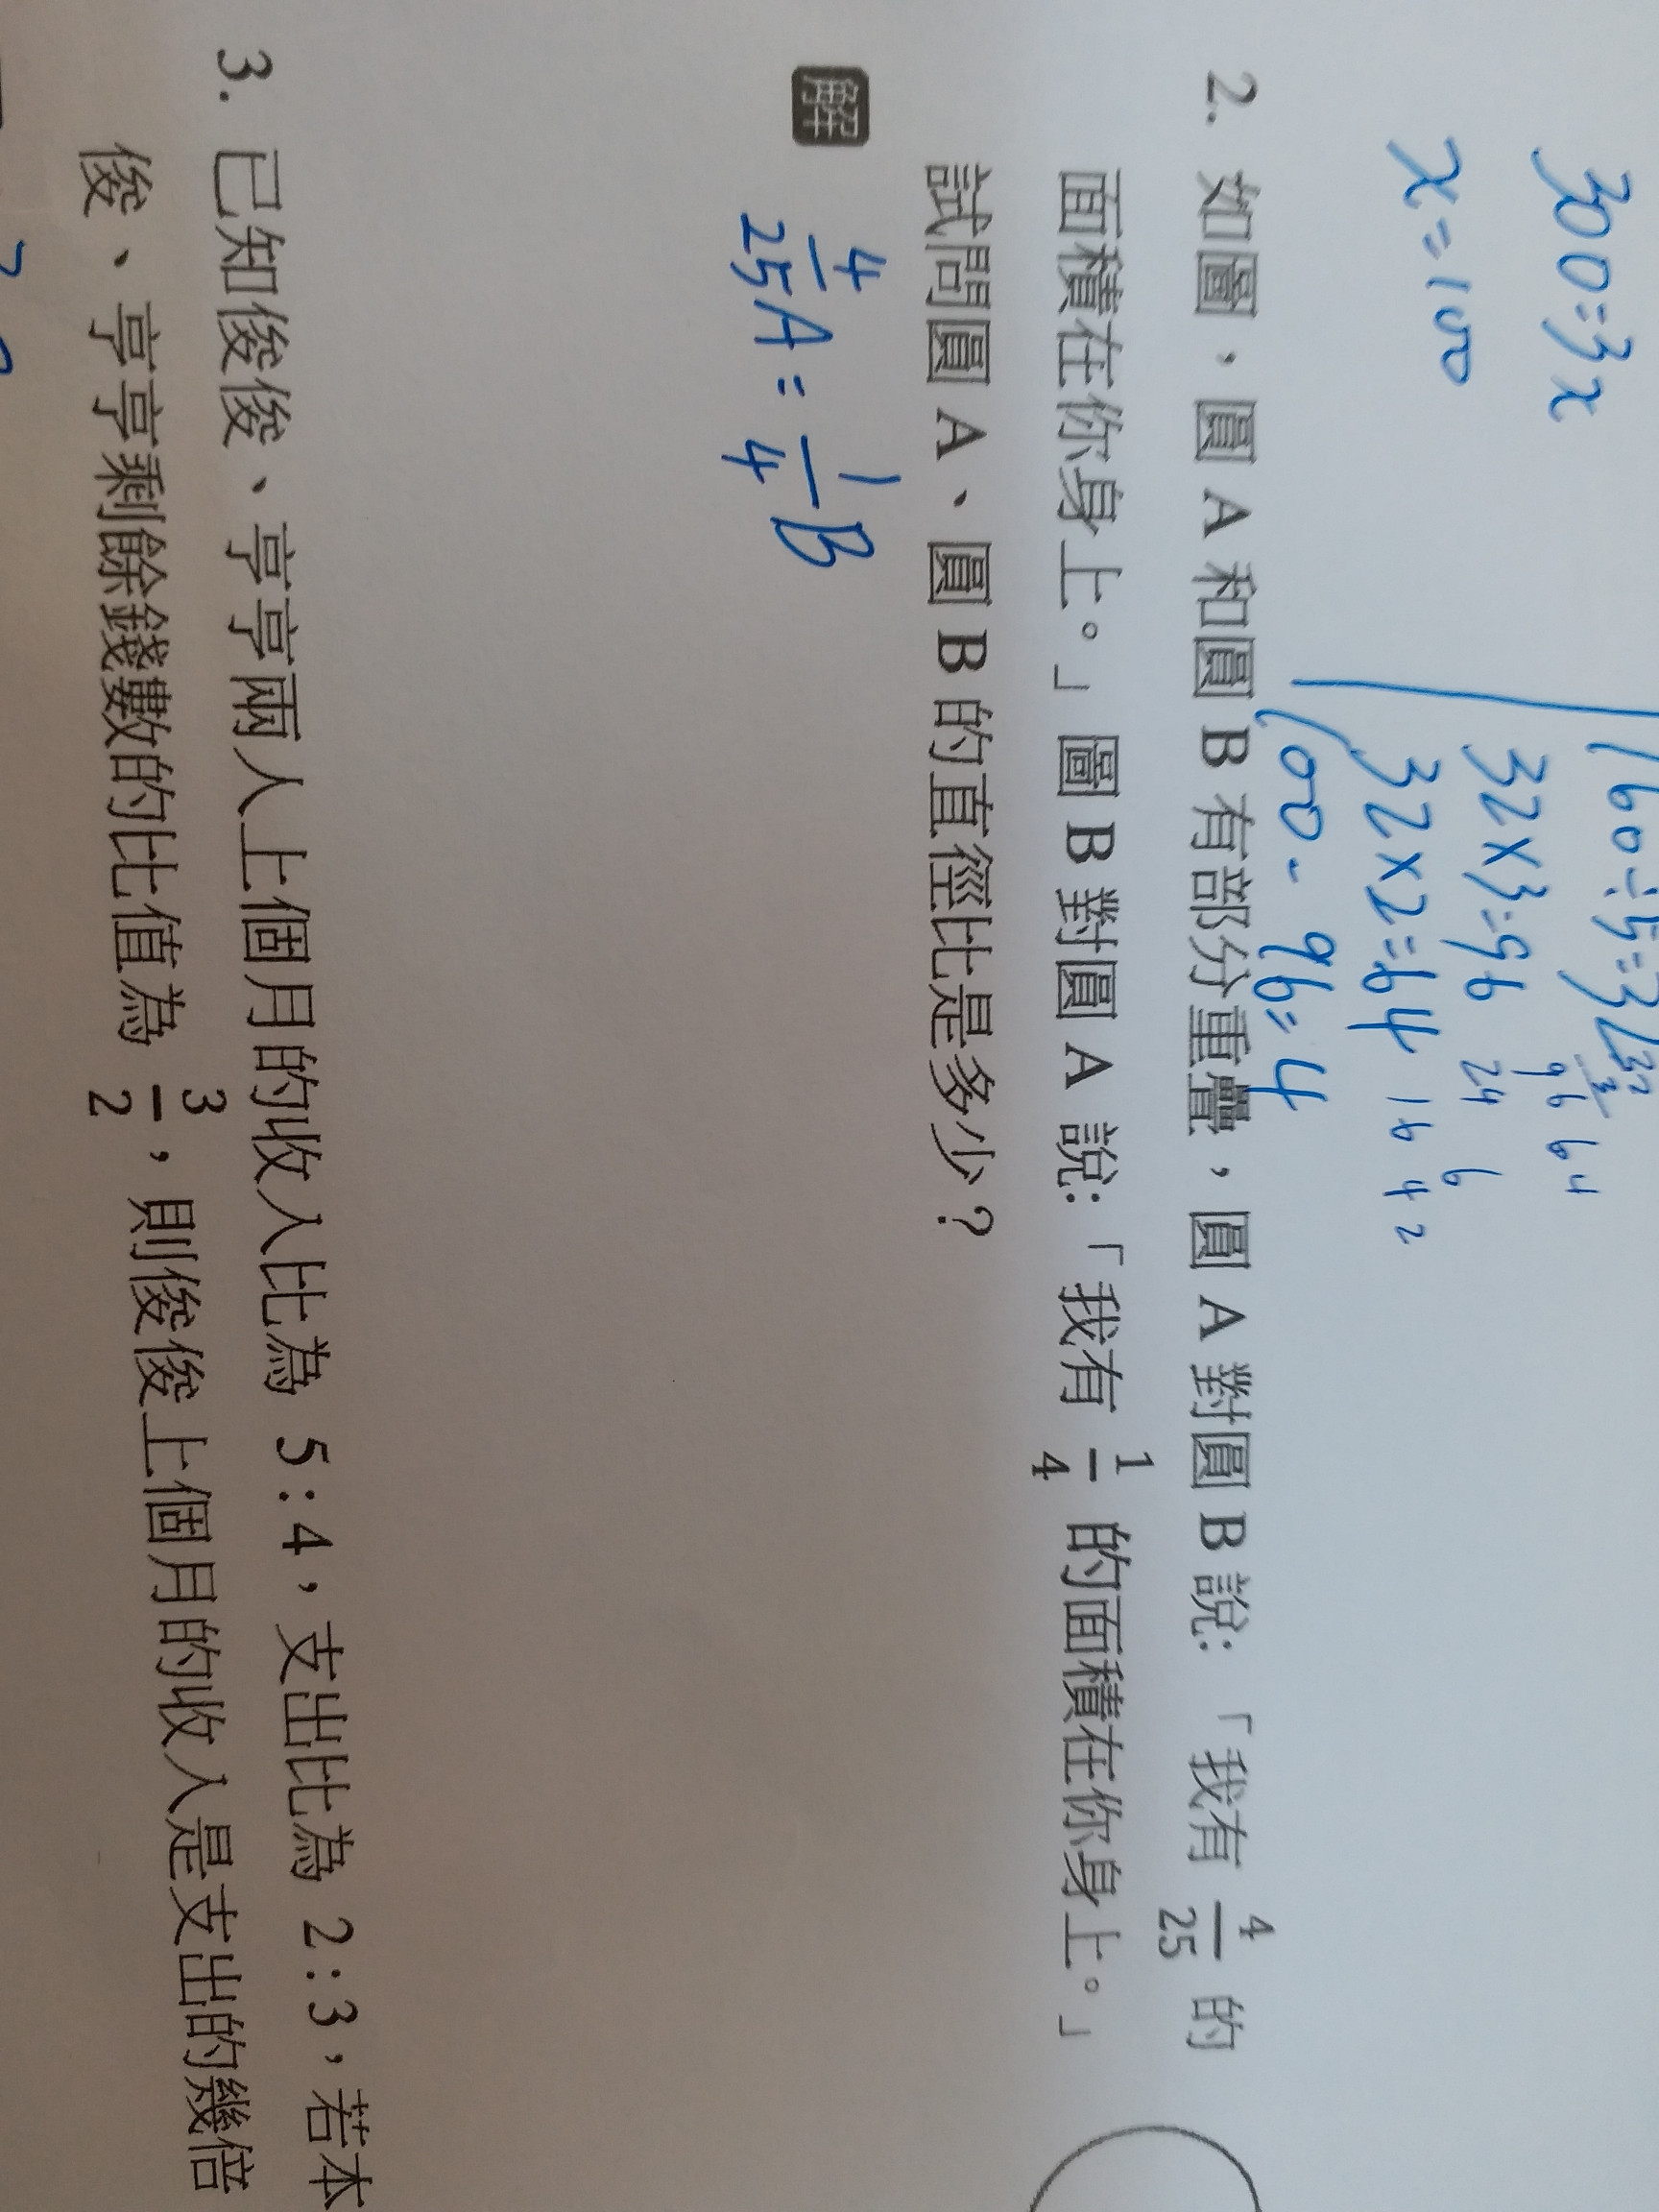 300=3x
x=100
160÷5=32
32 3
96 64
32×3=96 24 6
32×2=64 16 4 2
100-96=4
2. 如圖,圓 A 和圓 B 有部分重疊,圓 A 對圓 B 說:「我有 4/25 的
面積在你身上。」圖 B 對圓 A 說:「我有 1/4 的面積在你身上。」
試問圓 A、圓 B 的直徑比是多少?
解
4/25 A = 1/4 B
3. 已知俊俊、亨亨兩人上個月的收入比為 5:4,支出比為 2:3,若本
俊、亨亨剩餘錢數的比值為 3/2,則俊俊上個月的收入是支出的幾倍